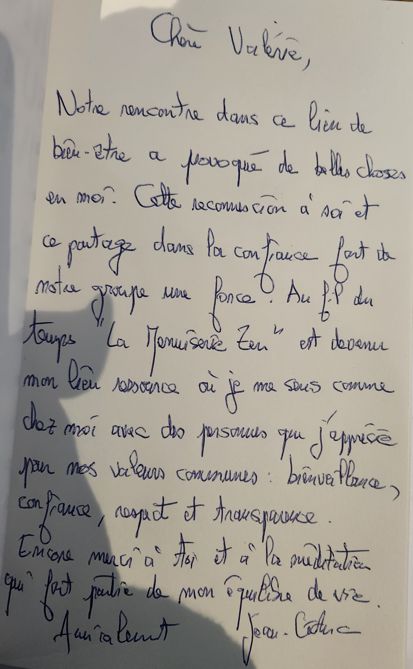 Chère Valérie,
Notre rencontre dans ce lieu de
bien-être a provoqué de belles choses
en moi. Cette reconnexion à soi et
ce partage dans la confiance font de
notre groupe une force. Au fil du
temps "La Menuiserie Zen" est devenu
mon lieu ressource où je me sens comme
chez moi avec des personnes que j'apprécie
pour nos valeurs communes : bienveillance,
confiance, respect et transparence.
Encore merci à toi et à la méditation
qui fait partie de mon équilibre de vie.
Amicalement Jean-